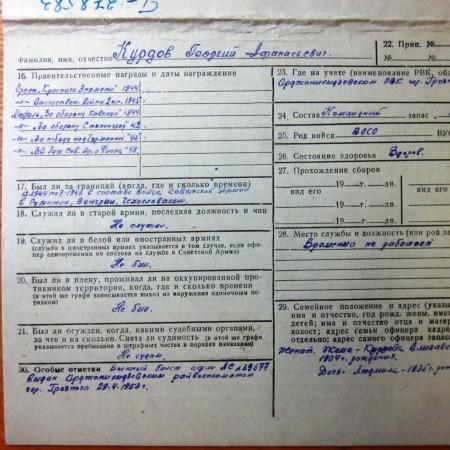 Фамилия, имя, отчество Курдов Георгий Афанасьевич.
22. Прип. №
№
16. Правительственные награды и даты награждения
Орден "Красного Знамени" 1944г.
—"— Отечествен. Войны 2 ст. 1945г.
Медаль "За оборону Кавказа" 1944г.
—"— "За оборону Сталинград" 42.
—"— "За победу над Германией" 45г.
—"— "30 лет Сов. Ар. и Флота" 48.
17. Был ли за границей (когда, где и сколько времени)
в составе войск Советской Армии
в Румынии, Венгрии, Чехословакии.
18. Служил ли в старой армии, последняя должность и чин
Не служил.
19. Служил ли в белой или иностранных армиях
(служба в иностранных армиях указывается в том случае, если офицер одновременно не состоял на службе в Советской Армии)
Не был.
20. Был ли в плену, проживал ли на оккупированной противником территории, когда, где и сколько времени
(в этой же графе записывается выход из окружения одиночным порядком)
Не был.
21. Был ли осужден, когда, какими судебными органами, за что и на сколько. Снята ли судимость
(в этой же графе указывается пребывание в штрафных частях в порядке наказания)
Не судим.
30. Особые отметки Военный билет
выдан Орджоникидзевским райвоенкоматом
гор. Грозного 29.4.1953г.
23. Где на учете (наименование РВК, обл
Орджоникидзевском РВК гор. Гроз
24. Состав Командный
запас
25. Род войск ВОСО
ВУ
26. Состояние здоровья Здоров.
27. Прохождение сборов
вид его
19 г. дн.
вид его
19
19 г. дн.
19
19 г. дн.
19
28. Место службы и должность (или род за
Временно не работает
29. Семейное положение и адрес (указы
имя и отчество, год рожд. жены, имен
детей; имя и отчество отца и матер
холост; адрес семьи офицера кадра
отдельно; адрес самого офицера запаса
Женат. Жена - Курдова Елизаве
1904г. рождения.
Дочь - Людмила - 1935г. рож